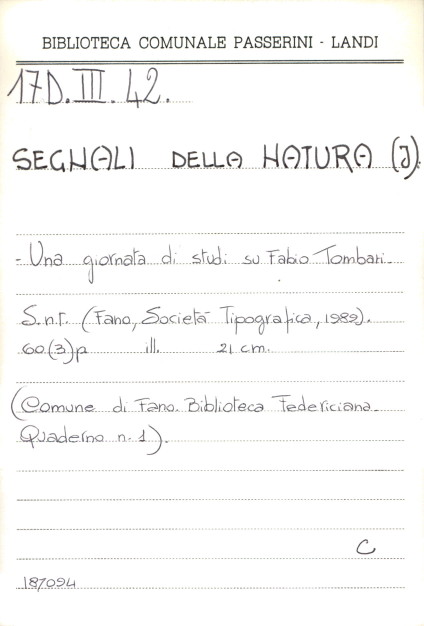 BIBLIOTECA COMUNALE PASSERINI - LANDI
17D.III.42.
SEGNALI DELLA NATURA (I).
- Una giornata di studi su Fabio Tombari.
S.n.t. (Fano, Società Tipografica, 1989).
60(3)p ill. 21 cm.
(Comune di Fano. Biblioteca Federiciana.
Quaderno n. 1).
C
187094